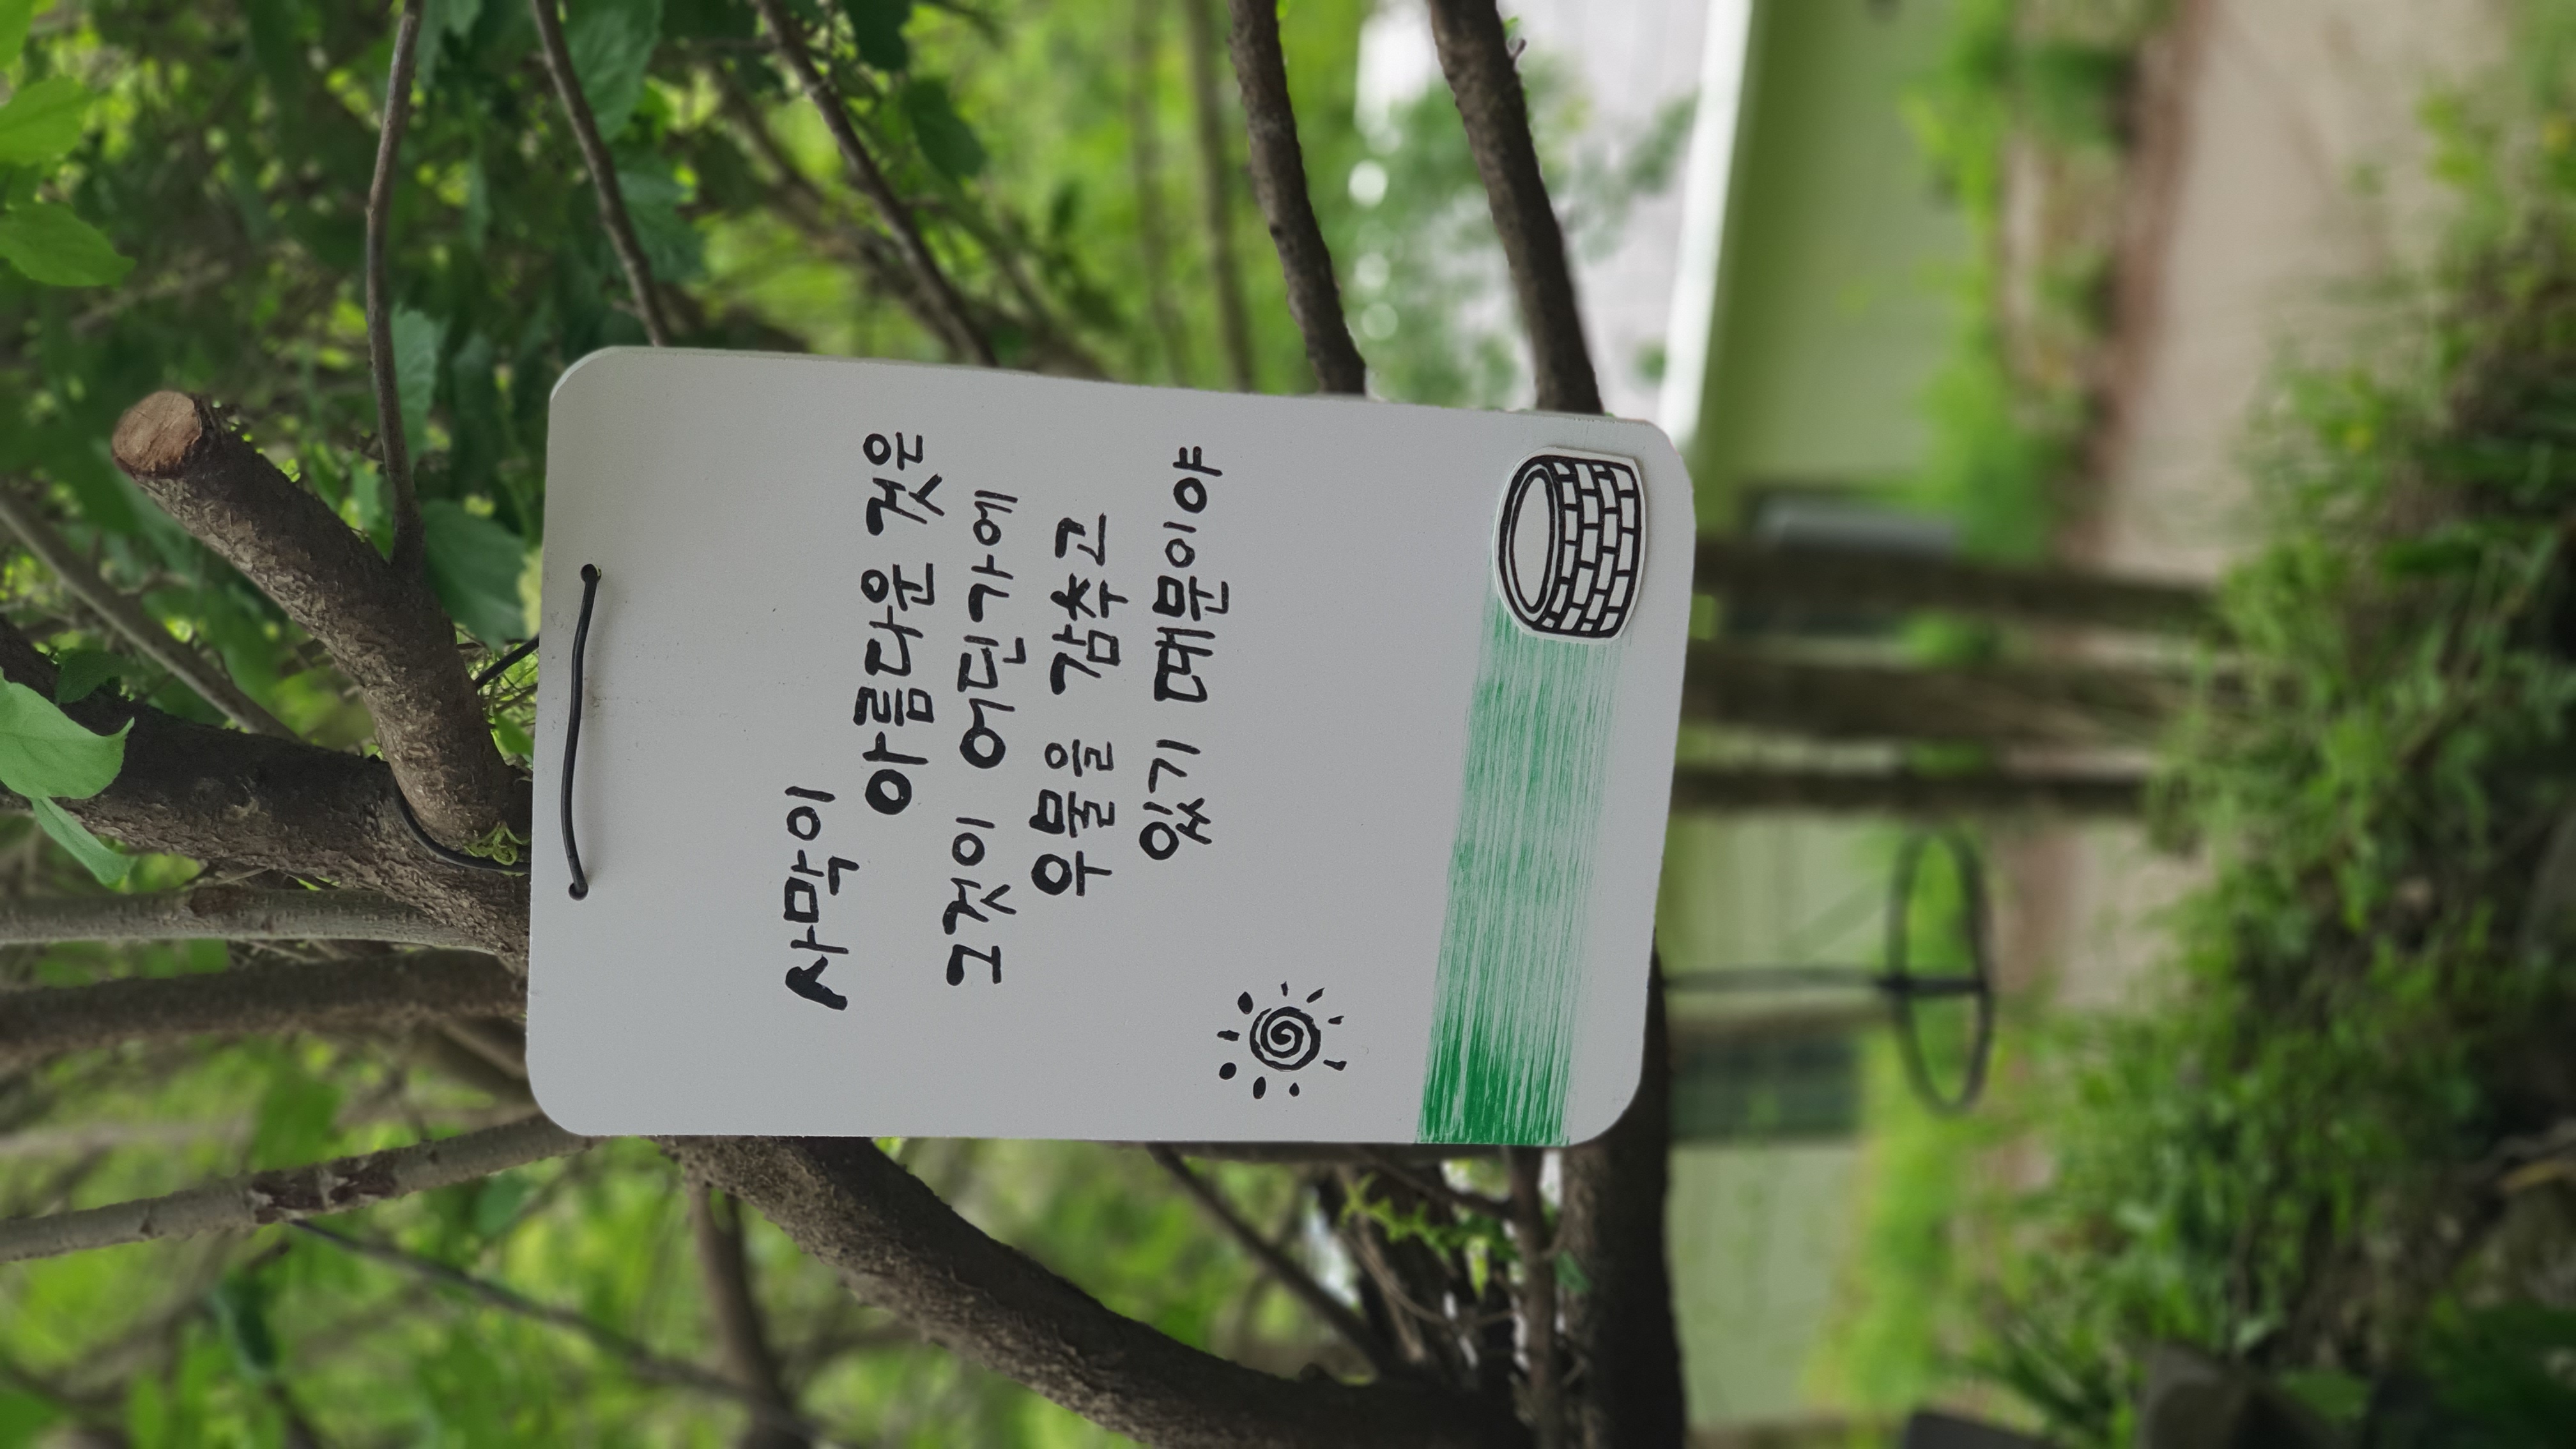 사막이
아름다운 것은
그것이 어딘가에
우물을 감추고
있기 때문이야